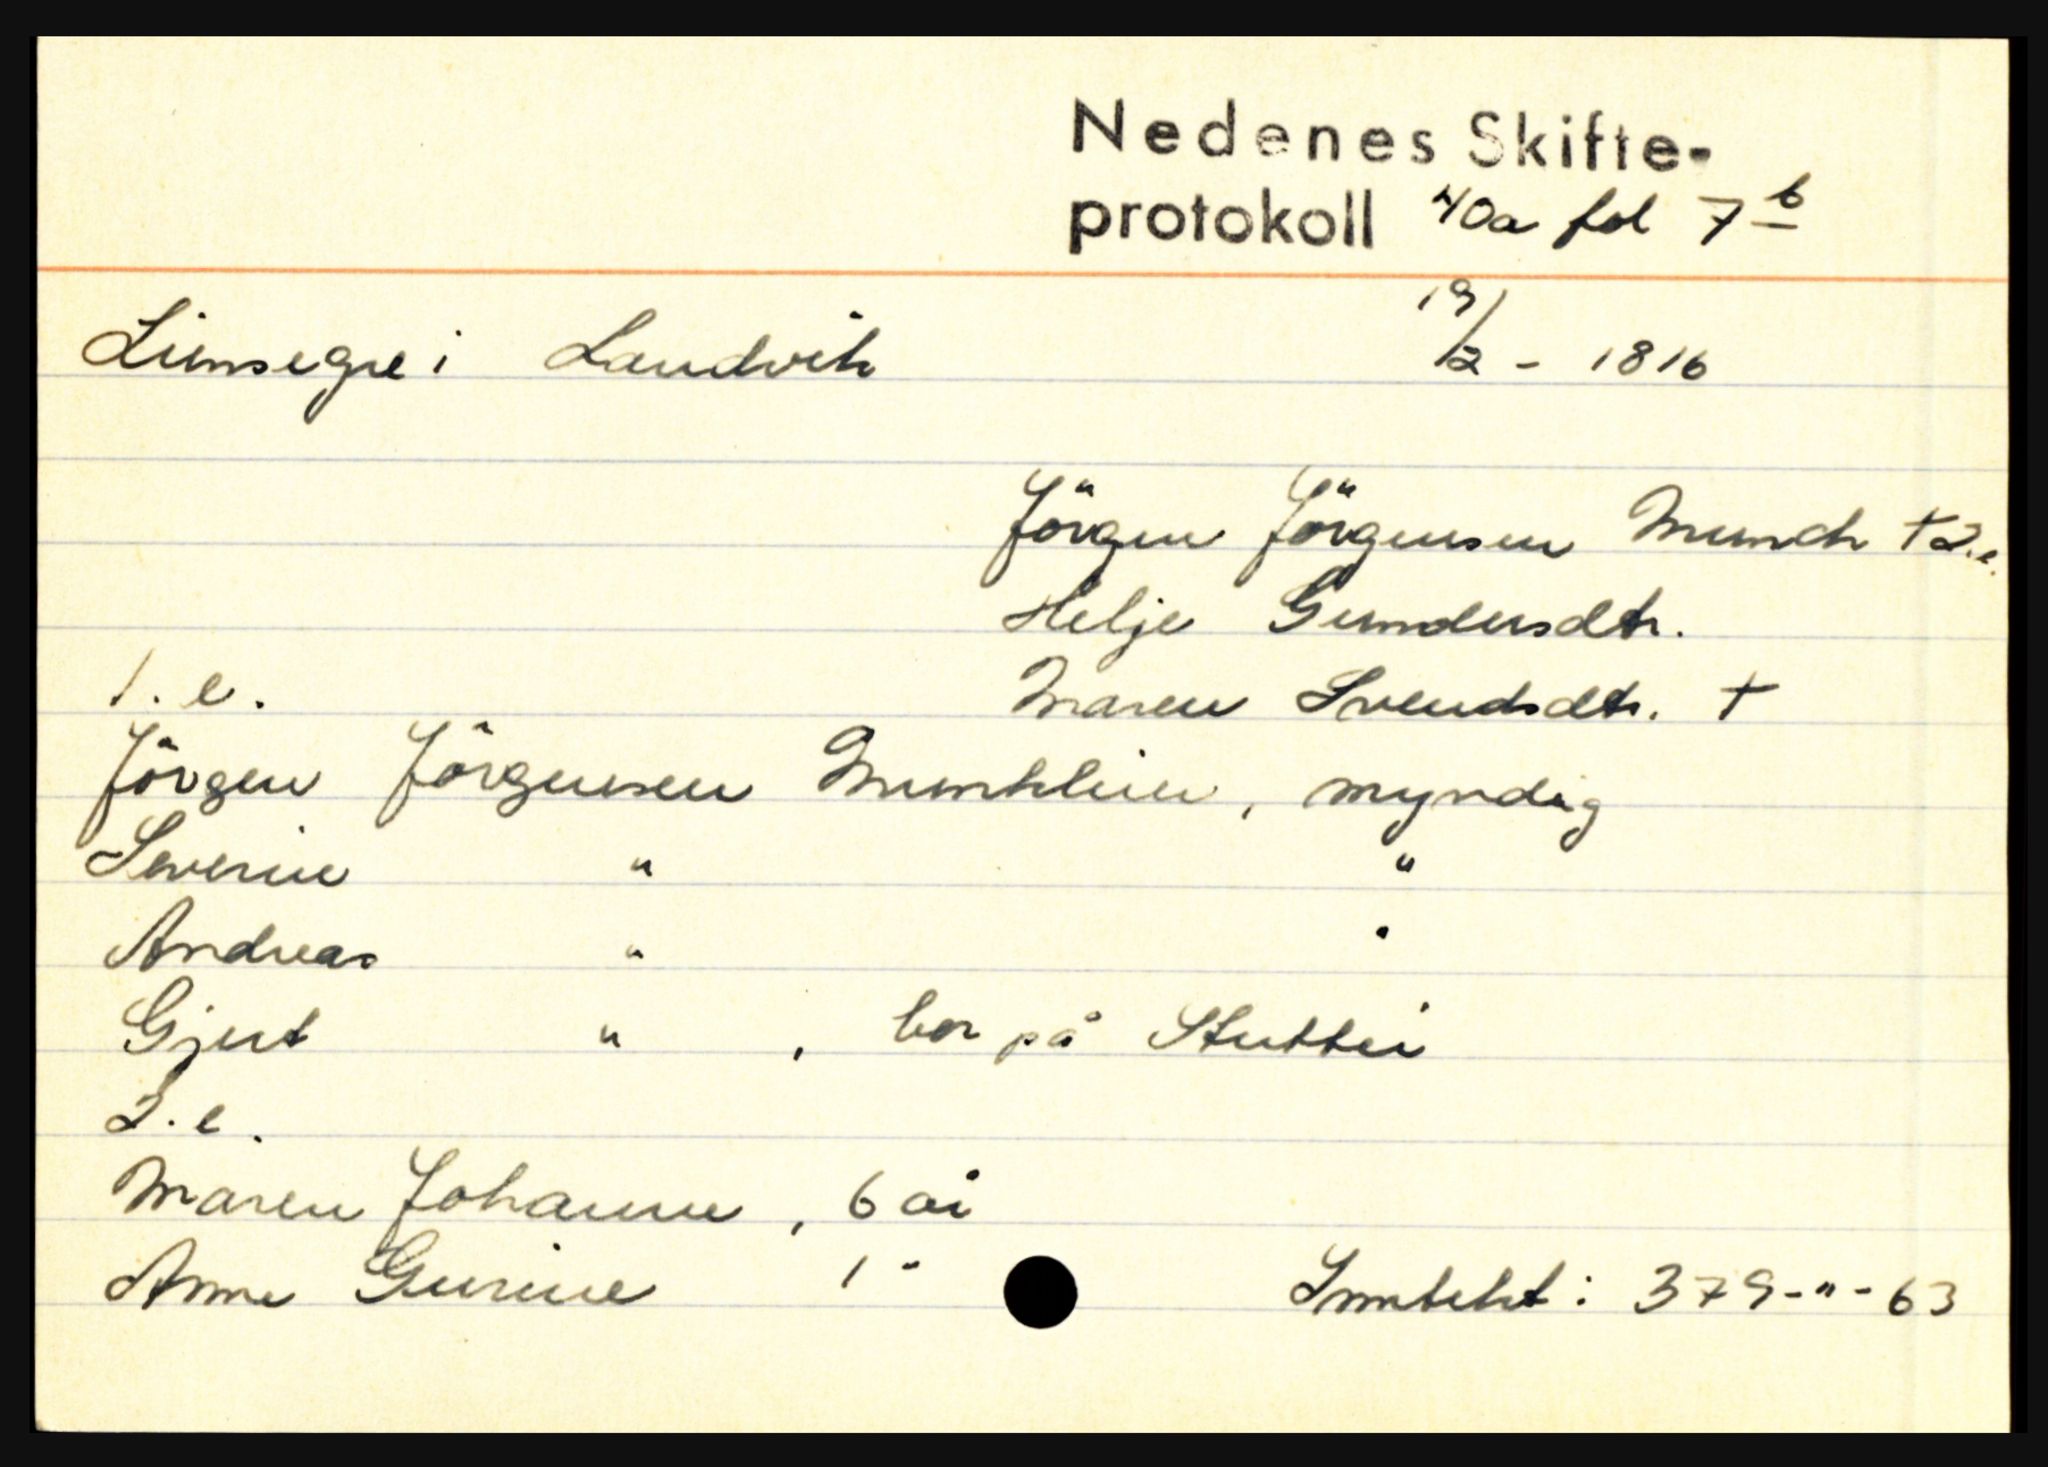 Nedenes Skifte-
protokoll 40a fol 7 b
Limsegre i Landvik 19/2 - 1816
Jörgen Jörgensen Munch † 2.e.
Helje Gundersdtr.
1.e. Maren Svendsdtr. †
Jörgen Jörgensen Munkhien, myndig
Severin " "
Andreas " "
Gjert " , bor på Stuttei
2.e.
Maren Johanne, 6 år
Anne Gurine 1 "
Inntekt: 379-"-63